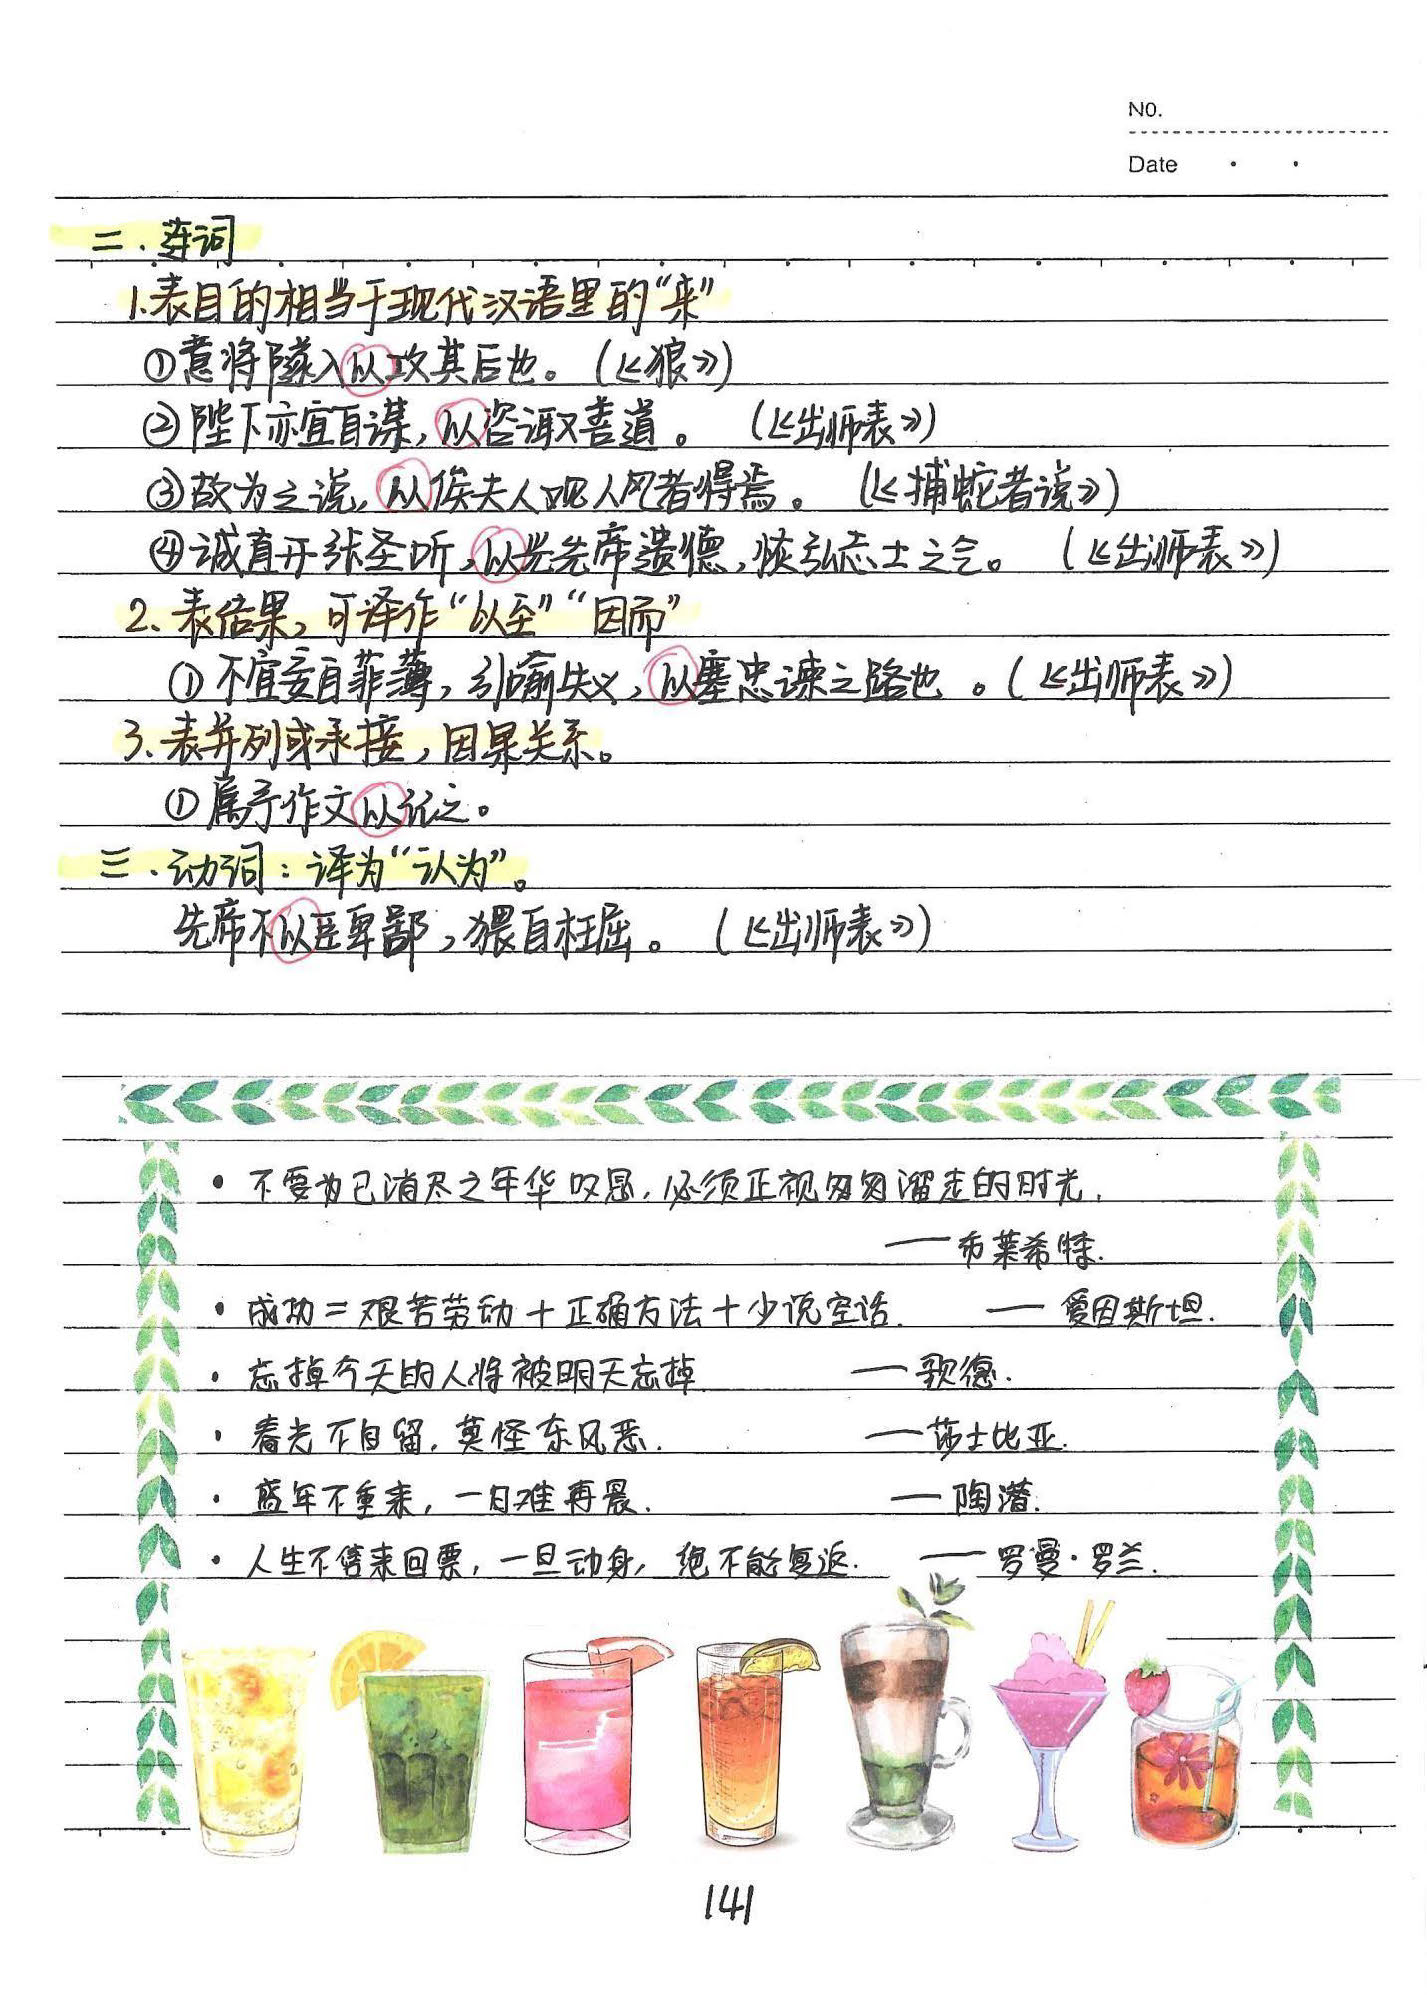 NO.
Date
二.连词
1.表目的相当于现代汉语里的“来”
①意将隧入以攻其后也。(《狼》)
②陛下亦宜自谋,以咨诹善道。(《出师表》)
③故为之说,以俟夫人观人风者得焉。(《捕蛇者说》)
④诚宜开张圣听,以光先帝遗德,恢弘志士之气。(《出师表》)
2、表结果,可译作“以至”“因而”
①不宜妄自菲薄,引喻失义,以塞忠谏之路也。(《出师表》)
3、表并列或承接,因果关系。
①属予作文以记之。
三.动词:译为“认为”。
先帝不以臣卑鄙,猥自枉屈。(《出师表》)
• 不要为已消尽之年华叹息,必须正视匆匆溜走的时光.
——布莱希特.
• 成功=艰苦劳动+正确方法+少说空话. ——爱因斯坦.
• 忘掉今天的人将被明天忘掉 ——歌德.
• 春光不自留,莫怪东风恶. ——莎士比亚.
• 盛年不重来,一日难再晨. ——陶潜.
• 人生不售来回票,一旦动身,绝不能复返. ——罗曼·罗兰.
141